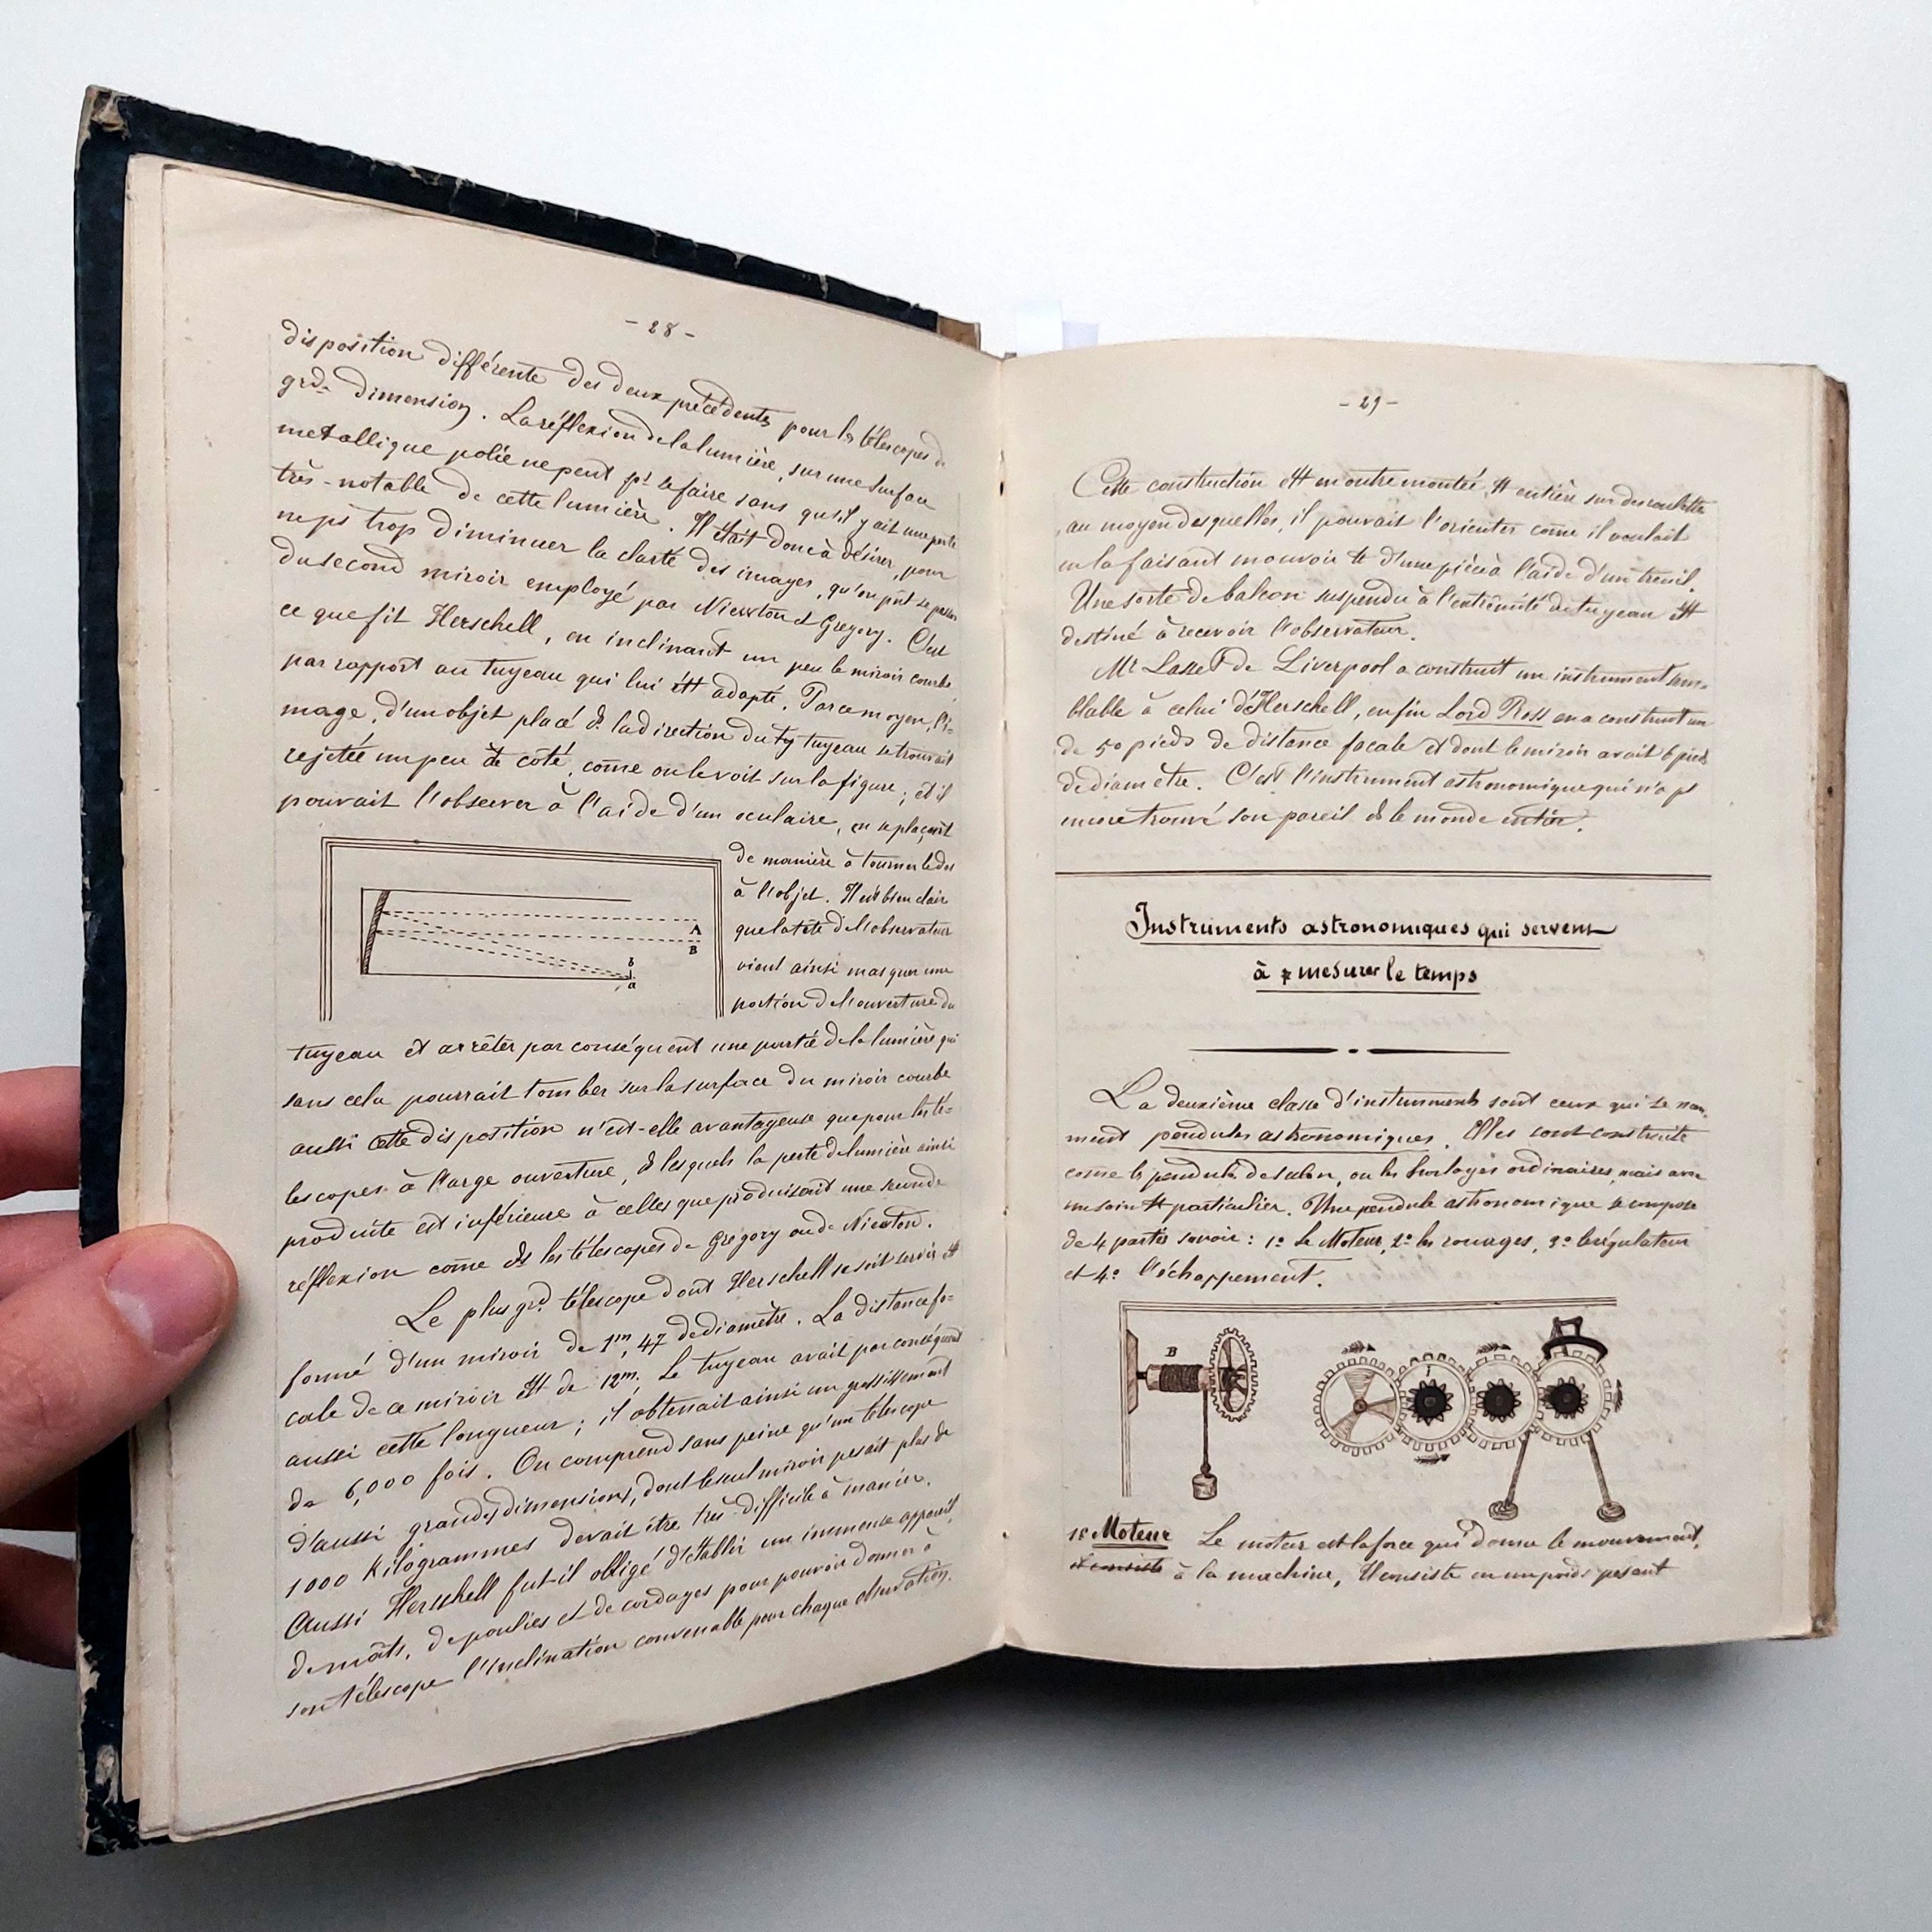 - 28 -
disposition différente des deux précédents pour les télescopes de
grde dimension. La réflexion de la lumière, sur une surface
metallique polie ne peut ps se faire sans qu'il y ait une perte
très-notable de cette lumière. Il était donc à désirer, pour
ne ps trop diminuer la clarté des images, qu'on pût se passer
du second miroir employé par Niewton et Gregory. C'est
ce que fit Herschell, en inclinant un peu le miroir courbe
par rapport au tuyeau qui lui était adapté. Par ce moyen, l'i-
mage, d'un objet placé ds la direction du tuyeau se trouvait
rejetée un peu de côté, come on le voit sur la figure; et il
pouvait l'observer à l'aide d'un oculaire, en se plaçant
de manière à tourner le dos
à l'objet. Il est bien clair
que la tête de l'observateur
vient ainsi masquer une
portion de l'ouverture du
A
B
b
a
tuyeau et arrêter par conséquent une partie de la lumière qui
sans cela pourrait tomber sur la surface du miroir courbe
aussi cette disposition n'est-elle avantageuse que pour les té-
lescopes à large ouverture, ds lesquels la perte de lumière ainsi
produite est inférieure à celles que produisait une seconde
réflexion come ds les télescopes de Gregory ou de Niewton.
Le plus grd télescope dont Herschell se soit servi
formé d'un miroir de 1m, 47 de diamètre. La distance fo-
cale de ce miroir était de 12m. Le tuyeau avait par conséquent
aussi cette longueur; il obtenait ainsi un grossissement
de 6,000 fois. On comprend sans peine qu'un télescope
d'aussi grandes dimensions, dont le seul miroir pesait plus de
1000 Kilogrammes devait être très-difficile à manier.
Aussi Herschell fut-il obligé d'établir un immense appareil
de mâts, de poulies et de cordages pour pouvoir donner à
son télescope l'inclination convenable pour chaque observation.
- 29 -
Cette construction était en outre montée tt entière sur des roulettes
au moyen desquelles, il pouvait l'orienter come il voulait
en la faisant mouvoir tt d'une pièce à l'aide d'un treuil.
Une sorte de balcon suspendu à l'extrêmité du tuyeau était
destiné à recevoir l'observateur.
Mr Lassel de Liverpool a construit un instrument sem-
blable à celui d'Herschell, enfin Lord Ross en a construit un
de 50 pieds de distance focale et dont le miroir avait 6 pieds
de diamètre. C'est l'instrument astronomique qui n'a ps
encore trouvé son pareil ds le monde entier.
Instruments astronomiques qui servent
à mesurer le temps
La deuxième classe d'instruments sont ceux qui se nom-
ment pendules astronomiques. Elles sont construite
come les pendules de salon, ou les horloges ordinaires, mais avec
un soin tt particulier. Une pendule astronomique se compose
de 4 parties savoir: 1º le Moteur, 2º les rouages, 3º le régulateur
et 4º l'échappement.
B
1º Moteur Le moteur est la force qui donne le mouvement,
il consiste à la machine, Il consiste en un poids pesant